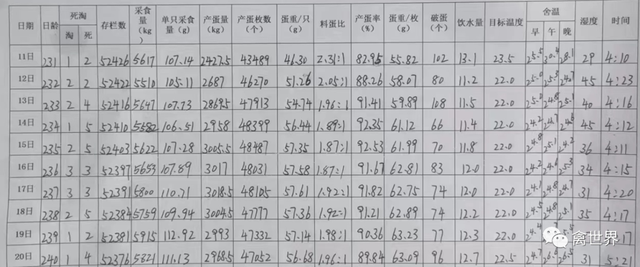 日期 日龄 死淘 存栏数 采食量(kg) 单只采食量(g) 产蛋量(kg) 产蛋枚数(个) 蛋重/只(g) 料蛋比 产蛋率(%) 蛋重/枚(g) 破蛋(个) 饮水量 目标温度 舍温 湿度 时间
淘 死 早 午 晚
11日 231 1 2 52426 5617 107.14 2427.5 43489 46.30 2.31:1 82.95 55.82 102 13.1 23.5 29 4:10
12日 232 2 2 52422 5510 105.11 2687 46270 51.26 2.05:1 88.26 58.07 80 11.2 22.0 45 4:23
13日 233 2 4 52416 5647 107.73 2869.5 47913 54.74 1.96:1 91.41 59.89 108 11.5 22.0 40 4:16
14日 234 1 5 52410 5582 106.51 2958 48399 56.44 1.89:1 92.35 61.12 66 11.4 22.0 45 4:12
15日 235 2 5 52403 5622 107.28 3005.5 48487 57.35 1.87:1 92.53 61.99 70 11.8 22.0 36 4:11
16日 236 3 3 52397 5653 107.89 3017 48031 57.58 1.87:1 91.67 62.81 83 12.0 22.0 34 4:15
17日 237 3 3 52391 5800 110.71 3018.5 48105 57.61 1.92:1 91.82 62.75 74 12.0 22.0 31 4:20
18日 238 2 5 52384 5759 109.94 3004.5 47777 57.36 1.92:1 91.21 62.89 74 12.2 22.0 35 4:17
19日 239 1 2 52381 5915 112.92 2993 47332 57.14 1.98:1 90.36 63.23 77 12.3 22.0
20日 240 1 4 52376 5821 111.13 2968.5 47052 56.68 1.96:1 89.84 63.09 96 12.7 22.5 31 5:21
禽世界